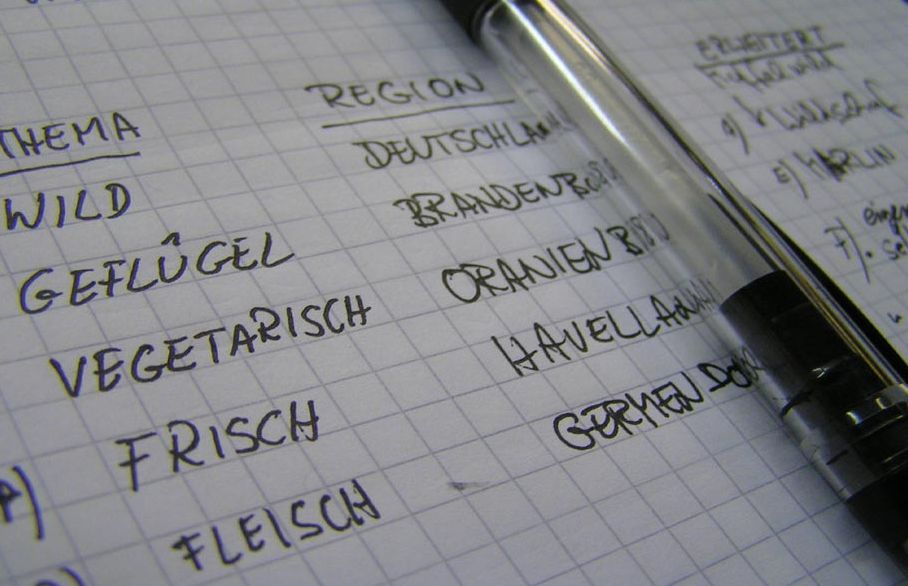 THEMA
WILD
GEFLÜGEL
VEGETARISCH
FRISCH
FLEISCH
REGION
DEUTSCHLA
BRANDENB
ORANIENB
HAVELLA
GERMENDO
ERWEITERT
E)
F)